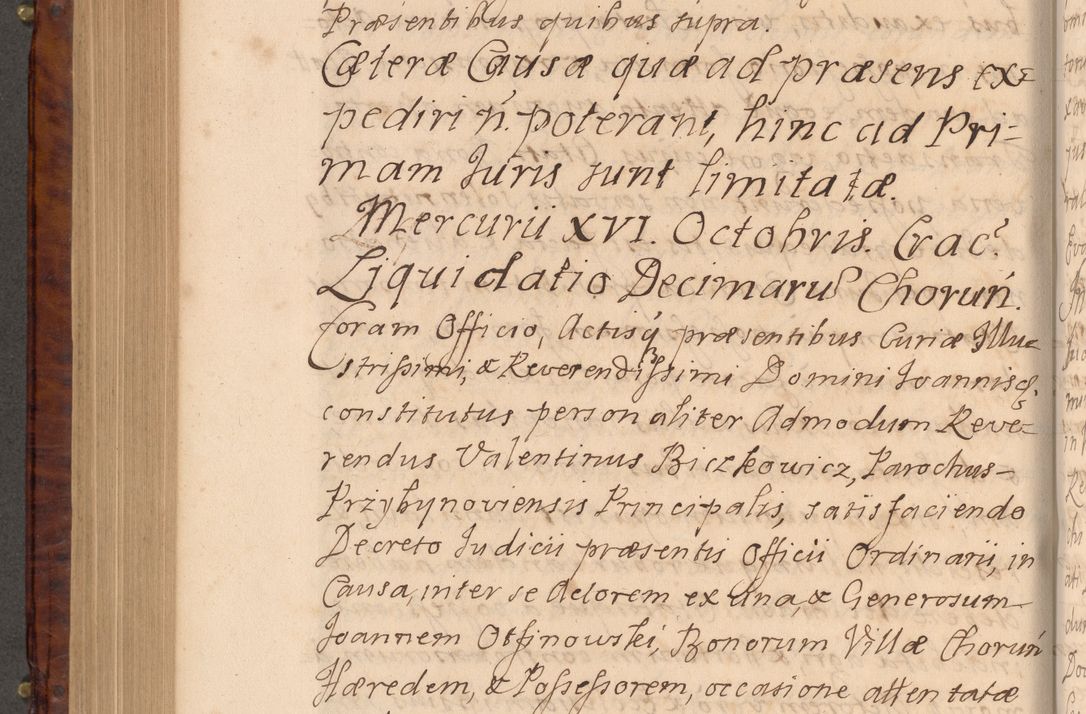 Præsentibus quibus supra.
Cæteræ Causæ quæ ad præsens ex=
pediri ñ. poterant, hinc ad Pri=
mam Juris sunt limitatæ.
Mercurii XVI. Octobris. Crac:
Liquidatio Decimarũ Choruń.
Coram Officio, Actisq́ præsentibus Curiæ Illu=
strißimi, & Reverendißsimi Domini Joannis &
constitutus personaliter Admodum Reve=
rendus Valentinus Biczkowicz, Parochus
Przybynoviensis Principalis, satisfaciendo
Decreto Judicii præsentis Officii Ordinarii, in
Causa, inter se Actorem ex una, & Generosum
Joannem Otfinowski, Bonorum Villæ Choruń
Hæredem, & Poßeßorem, occasione attentatæ